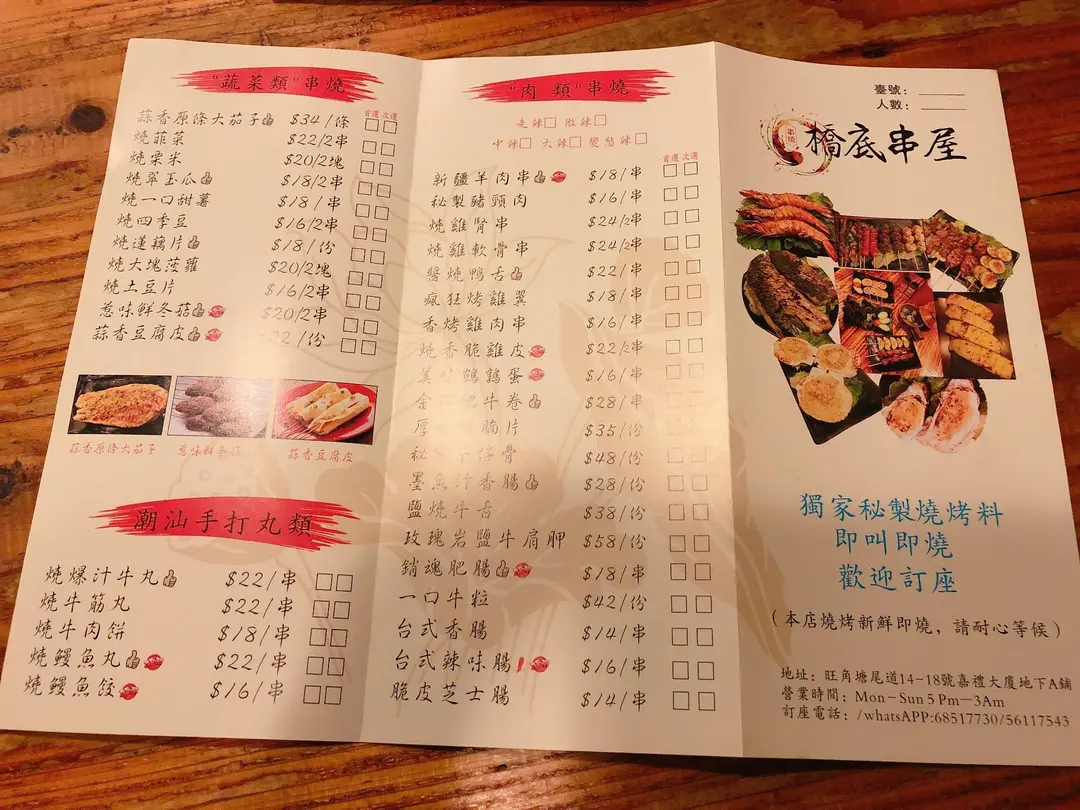 "蔬菜類"串燒
首選 次選
蒜香原條大茄子 $34/條
燒韮菜 $22/2串
燒粟米 $20/2塊
燒翠玉瓜 $18/2串
燒一口甜薯 $18/串
燒四季豆 $16/2串
燒蓮藕片 $18/份
燒大塊菠蘿 $20/2塊
燒土豆片 $16/2串
惹味鮮冬菇 $20/2串
蒜香豆腐皮 /份
蒜香原條大茄子 惹味鮮冬菇 蒜香豆腐皮
潮汕手打丸類
燒爆汁牛丸 $22/串
燒牛筋丸 $22/串
燒牛肉餅 $18/串
燒鰻魚丸 $22/串
燒鰻魚餃 $16/串
"肉類"串燒
走辣 微辣
中辣 大辣 變態辣
首選 次選
新疆羊肉串 $18/串
秘製豬頸肉 $16/串
燒雞腎串 $24/2串
燒雞軟骨串 $24/2串
醬燒鴨舌 $22/串
瘋狂烤雞翼 $18/串
香烤雞肉串 $16/串
燒香脆雞皮 $22/2串
美味鵪鶉蛋 $16/串
金 肥牛卷 $28/串
厚 腩片 $35/份
秘 仔骨 $48/份
墨魚汁香腸 $28/份
鹽燒牛舌 $38/份
玫瑰岩鹽牛肩胛 $58/份
銷魂肥腸 $18/串
一口牛粒 $42/份
台式香腸 $14/串
台式辣味腸 $16/串
脆皮芝士腸 $14/串
臺號：
人數：
串燒
橋底串屋
獨家秘製燒烤料
即叫即燒
歡迎訂座
（本店燒烤新鮮即燒，請耐心等候）
地址：旺角塘尾道14-18號嘉禮大廈地下A鋪
營業時間：Mon-Sun 5 Pm-3Am
訂座電話：/whatsAPP:68517730/56117543